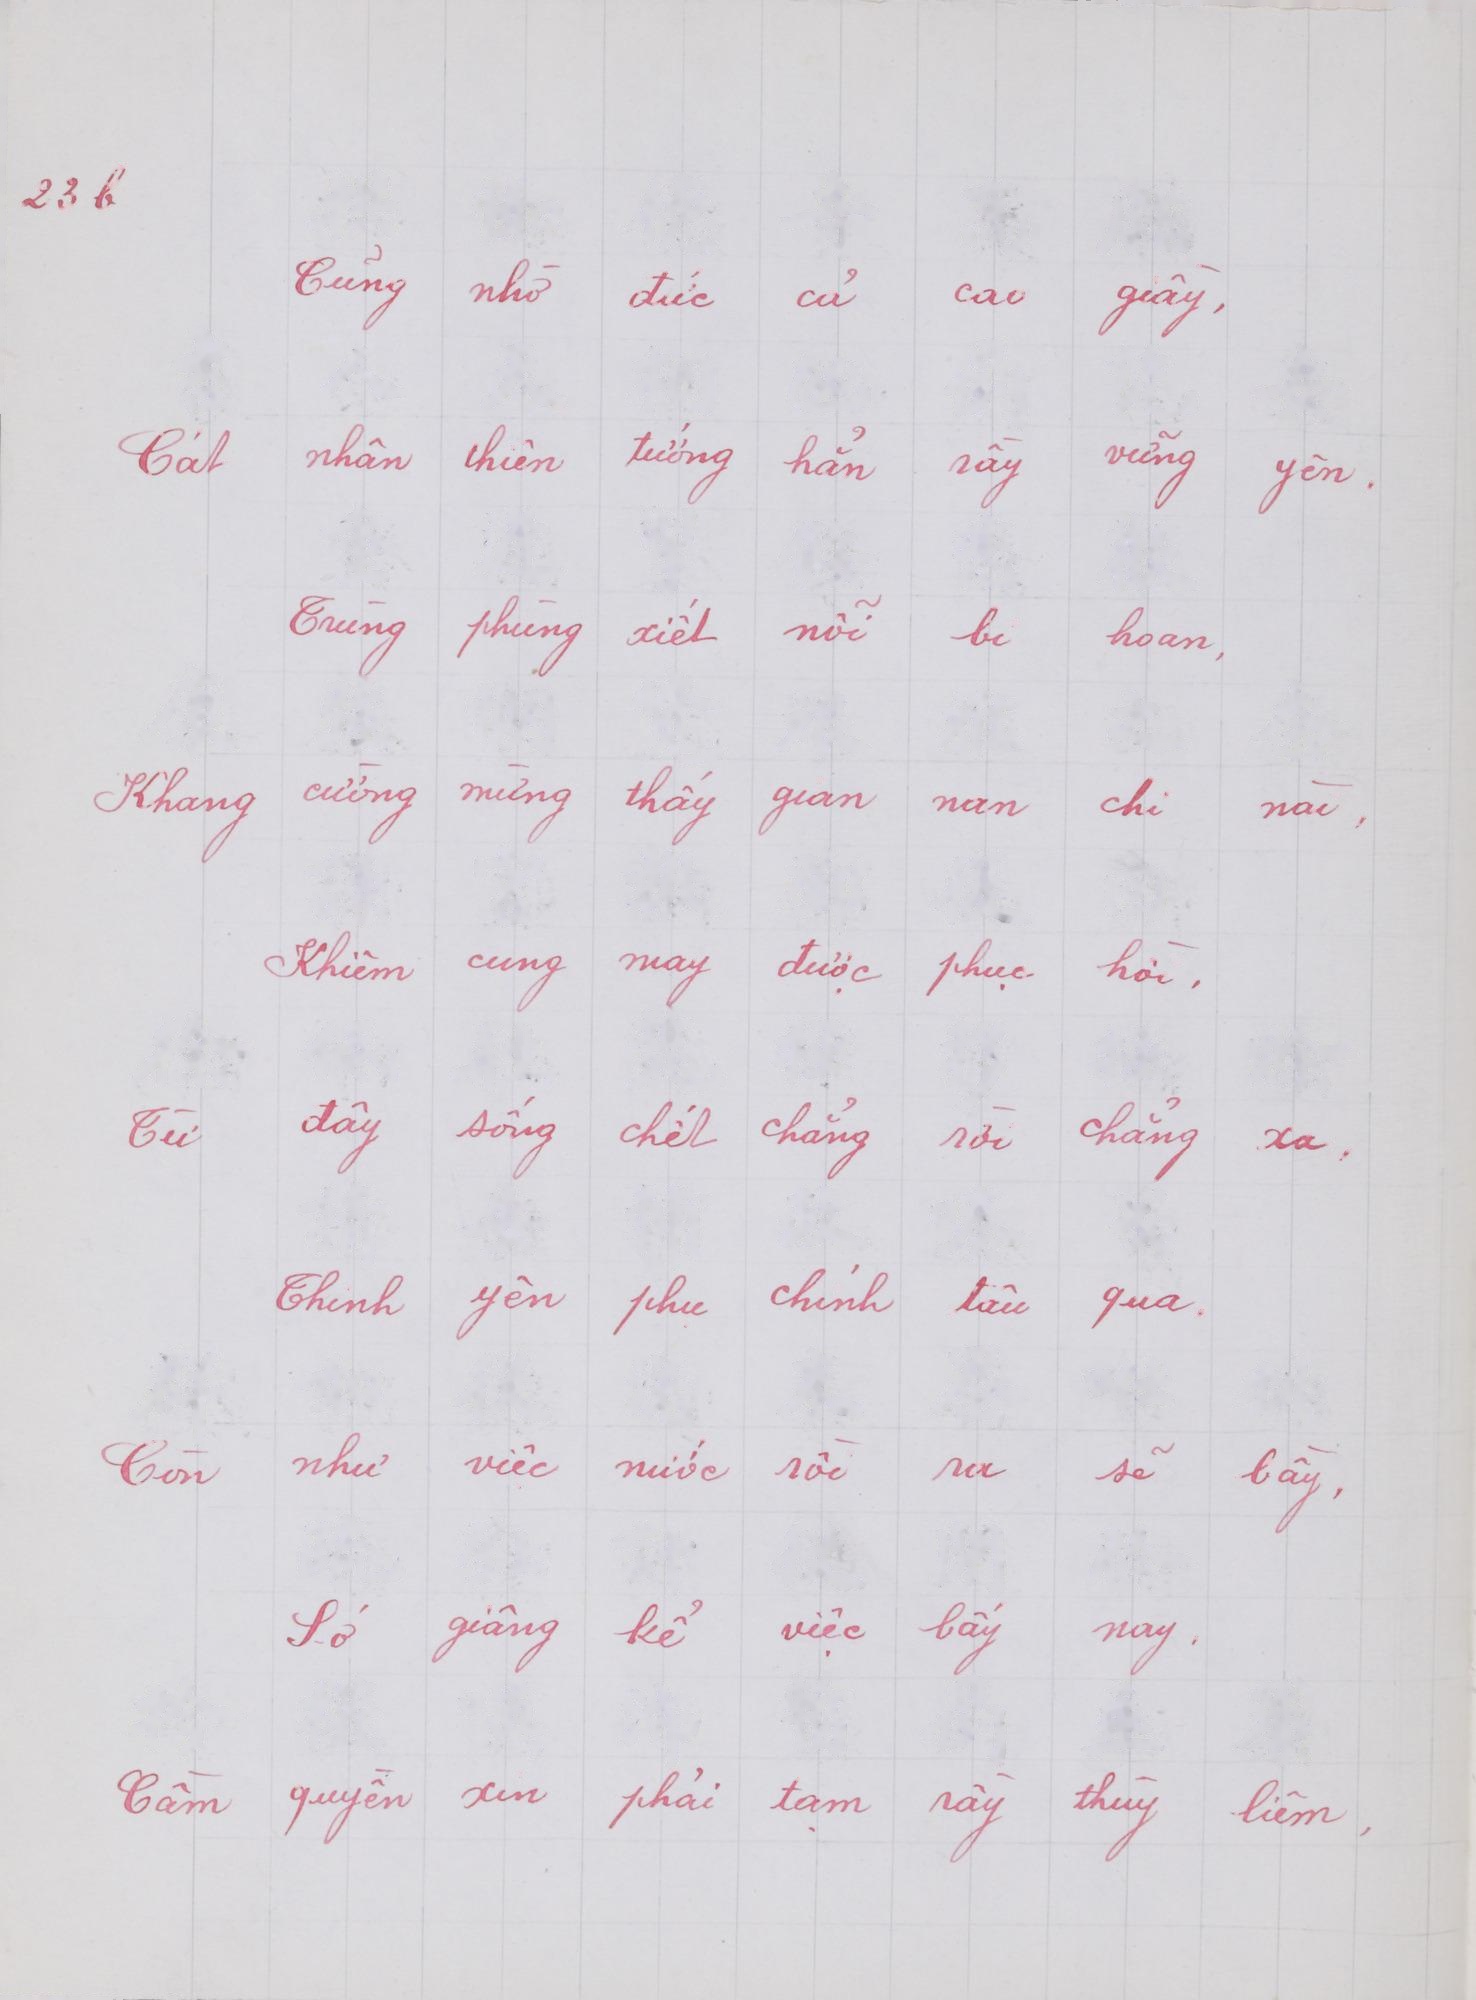 23b
Cũng nhờ đức cả cao giầy,
Cát nhân thiên tướng hẳn rầy vững yên.
Trùng phùng xiết nỗi bi hoan,
Khang cường mừng thấy gian nan chi nài,
Khiêm cung may được phục hồi,
Từ đây sống chết chẳng rời chẳng xa,
Thỉnh yên phụ chính tâu qua.
Còn như việc nước rồi ra sẽ bầy,
Sớ giâng kể việc bấy nay.
Cầm quyền xin phải tạm rầy thùy liêm,